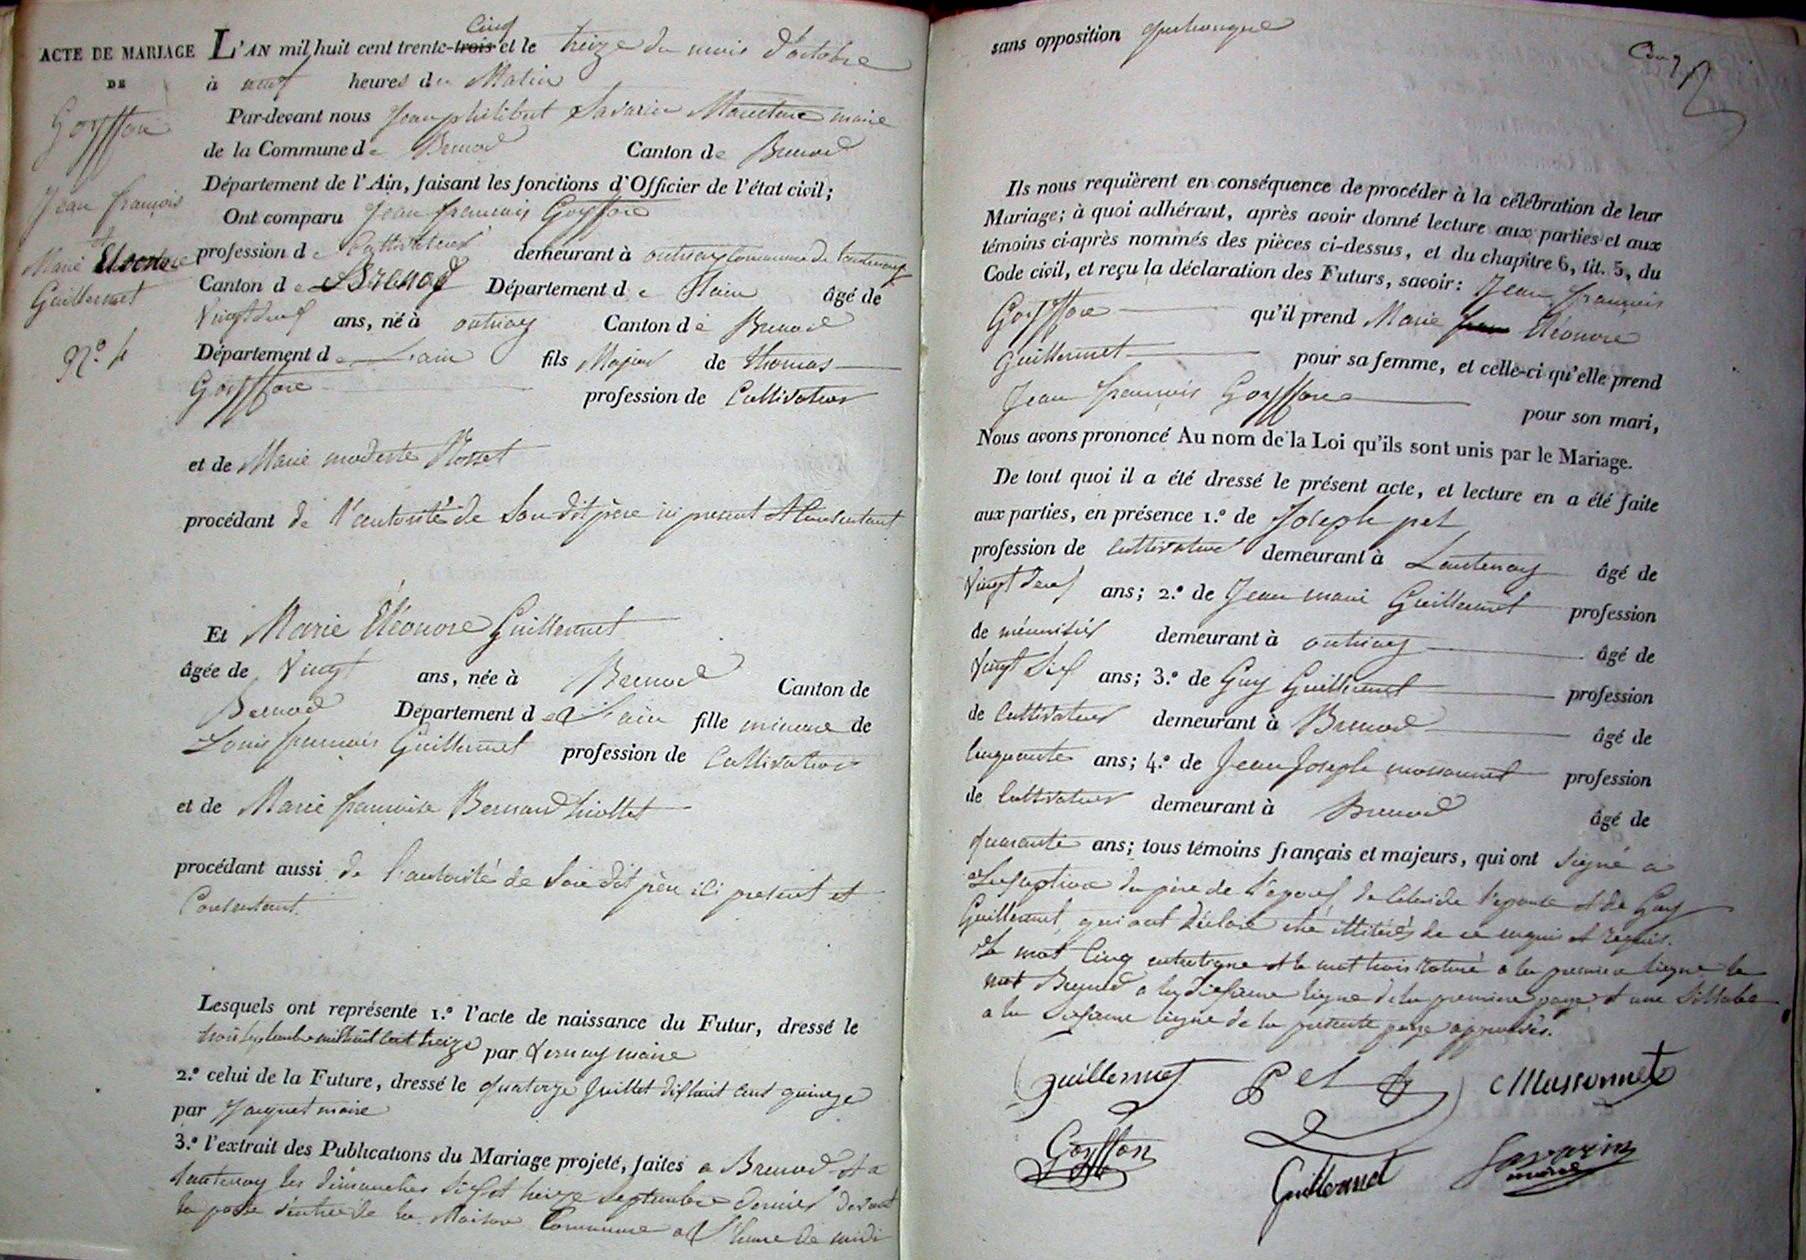 ACTE DE MARIAGE
DE
Goyffon
Jean françois
et
Marie Eléonore
Guillermet
N.° 4
Cinq
L'AN mil huit cent trente-trois et le treize du mois d'octobre
à neuf heures du Matin
Par-devant nous Jean philibert Savarin maire
de la Commune de Brenod Canton de Brenod
Département de l'Ain, faisant les fonctions d'Officier de l'état civil;
Ont comparu Jean françois Goyffon
profession de Cultivateur demeurant à outriaz Commune de Lantenay
Canton de Brenod Département de l'ain âgé de
Vingt deux ans, né à outriaz Canton de Brenod
Département de L'ain fils Majeur de thomas
Goyffon profession de Cultivateur
et de Marie modeste Rosset
procédant de l'autorité de Son dit père ici présent et Consentant
Et Marie Eléonore Guillermet
âgée de Vingt ans, née à Brenod Canton de
Brenod Département de l'ain fille mineure de
Louis françois Guillermet profession de Cultivateur
et de Marie françoise Bernard
procédant aussi de l'autorité de Son dit père ici présent et
Consentant
Lesquels ont représente 1.° l'acte de naissance du Futur, dressé le
trois Septembre mil huit Cent treize par Vernay maire
2.° celui de la Future, dressé le quatorze Juillet dix huit cent quinze
par Jacquet maire
3.° l'extrait des Publications du Mariage projeté, faites a Brenod et a
Lantenay les dimanches Six et treize Septembre dernier devant
la porte d'entrée de la Maison Commune a l'heure de midi
sans opposition quelconque
Cinq
Ils nous requièrent en conséquence de procéder à la célébration de leur
Mariage; à quoi adhérant, après avoir donné lecture aux parties et aux
témoins ci-après nommés des pièces ci-dessus, et du chapitre 6, tit. 5, du
Code civil, et reçu la déclaration des Futurs, savoir: Jean françois
Goyffon qu'il prend Marie Eléonore
Guillermet pour sa femme, et celle-ci qu'elle prend
Jean françois Goyffon pour son mari,
Nous avons prononcé Au nom de la Loi qu'ils sont unis par le Mariage.
De tout quoi il a été dressé le présent acte, et lecture en a été faite
aux parties, en présence 1.° de Joseph pel
profession de Cultivateur demeurant à Lantenay âgé de
Vingt deux ans; 2.° de Jean marie Guillermet profession
de menuisier demeurant à outriaz âgé de
Vingt Six ans; 3.° de Guy Guillermet profession
de Cultivateur demeurant à Brenod âgé de
Cinquante ans; 4.° de Jean Joseph massonnet profession
de Cultivateur demeurant à Brenod âgé de
quarante ans; tous témoins français et majeurs, qui ont Signé a
l'exception du père de l'epoux, de Celui de l'epouse et de Guy
Guillermet, qui ont déclaré être illitérés de ce enquis et requis.
Le mot Cinq entreligne et le mot trois raturé a la premiere ligne le
mot Brenod a la dixieme ligne de la premiere page et une Sillabe
a la Sixieme ligne de la presente page approuvés.
Guillermet Pel Massonnet
Goyffon Guillermet Savarin
maire